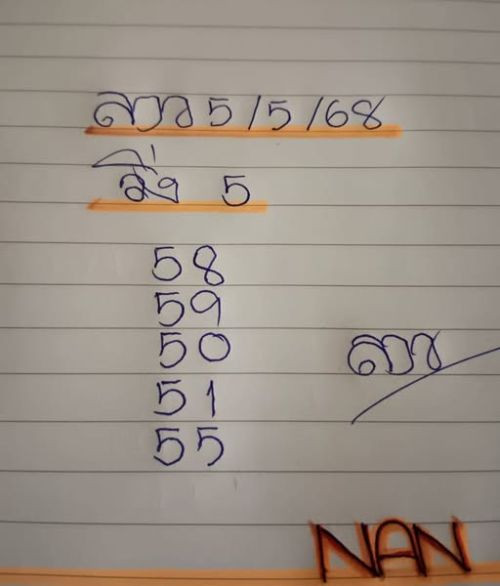 ลาว 5/5/68
วิ่ง 5
58
59
50
51
55
ลาว
NAN